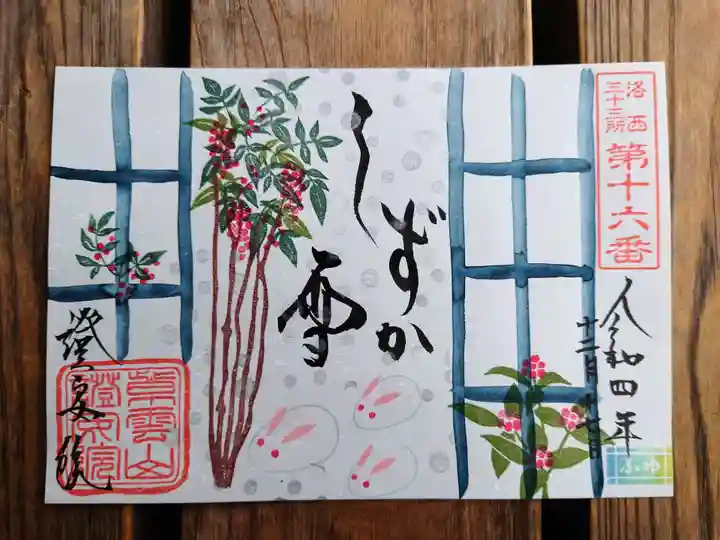 洛西
三十三所
第十六番
令和四年
十二月十七日
ふゆ
しずか
雪
證安院